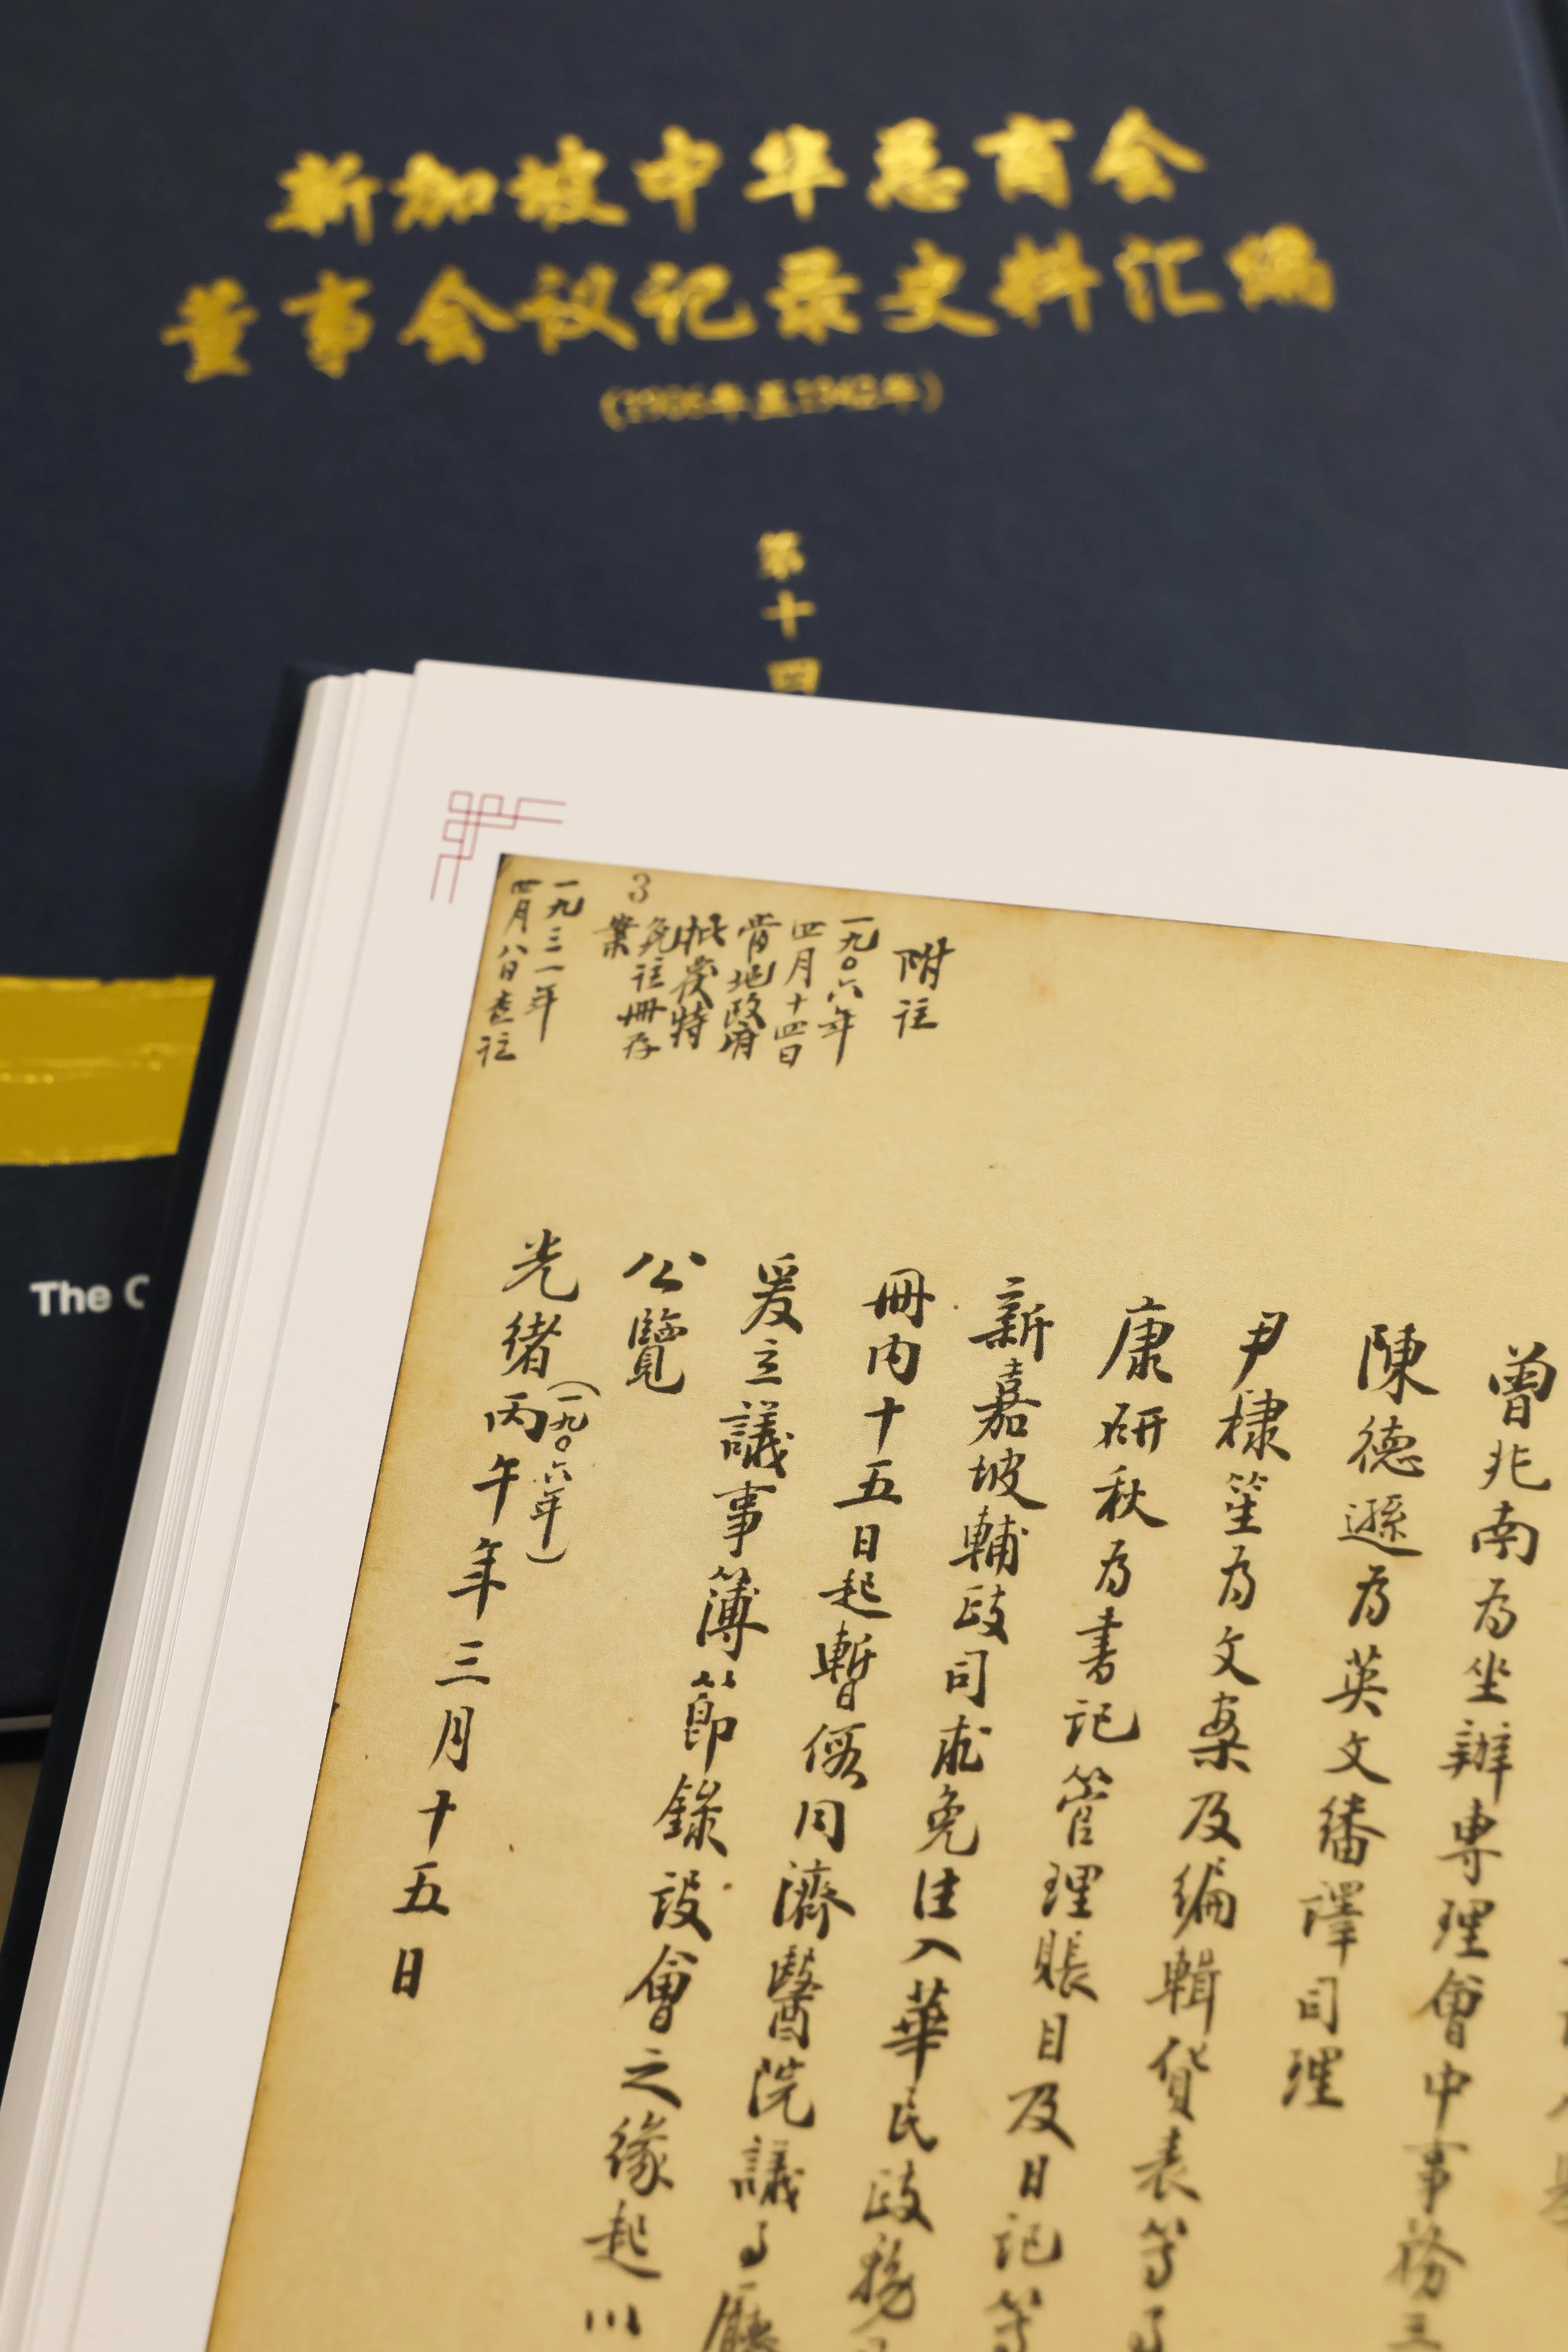 新加坡中华总商会
董事会议记录史料汇编
(1906年至1942年)
第十四
The C
3
附註
一九〇六年
四月十四日
當地政府
批準特
免註冊存
案
一九三一年
四月八日查註
曾兆南為坐辦專理會中事務
陳德遜為英文繙譯司理
尹棣笙為文案及编輯貨表等
康研秋為書記管理賬目及日記等
新嘉坡輔政司求免註入華民政務
冊内十五日起暫假同濟醫院議事廳
爰立議事簿節錄設會之緣起以
公覽
光緒丙午年三月十五日
(一九〇六年)